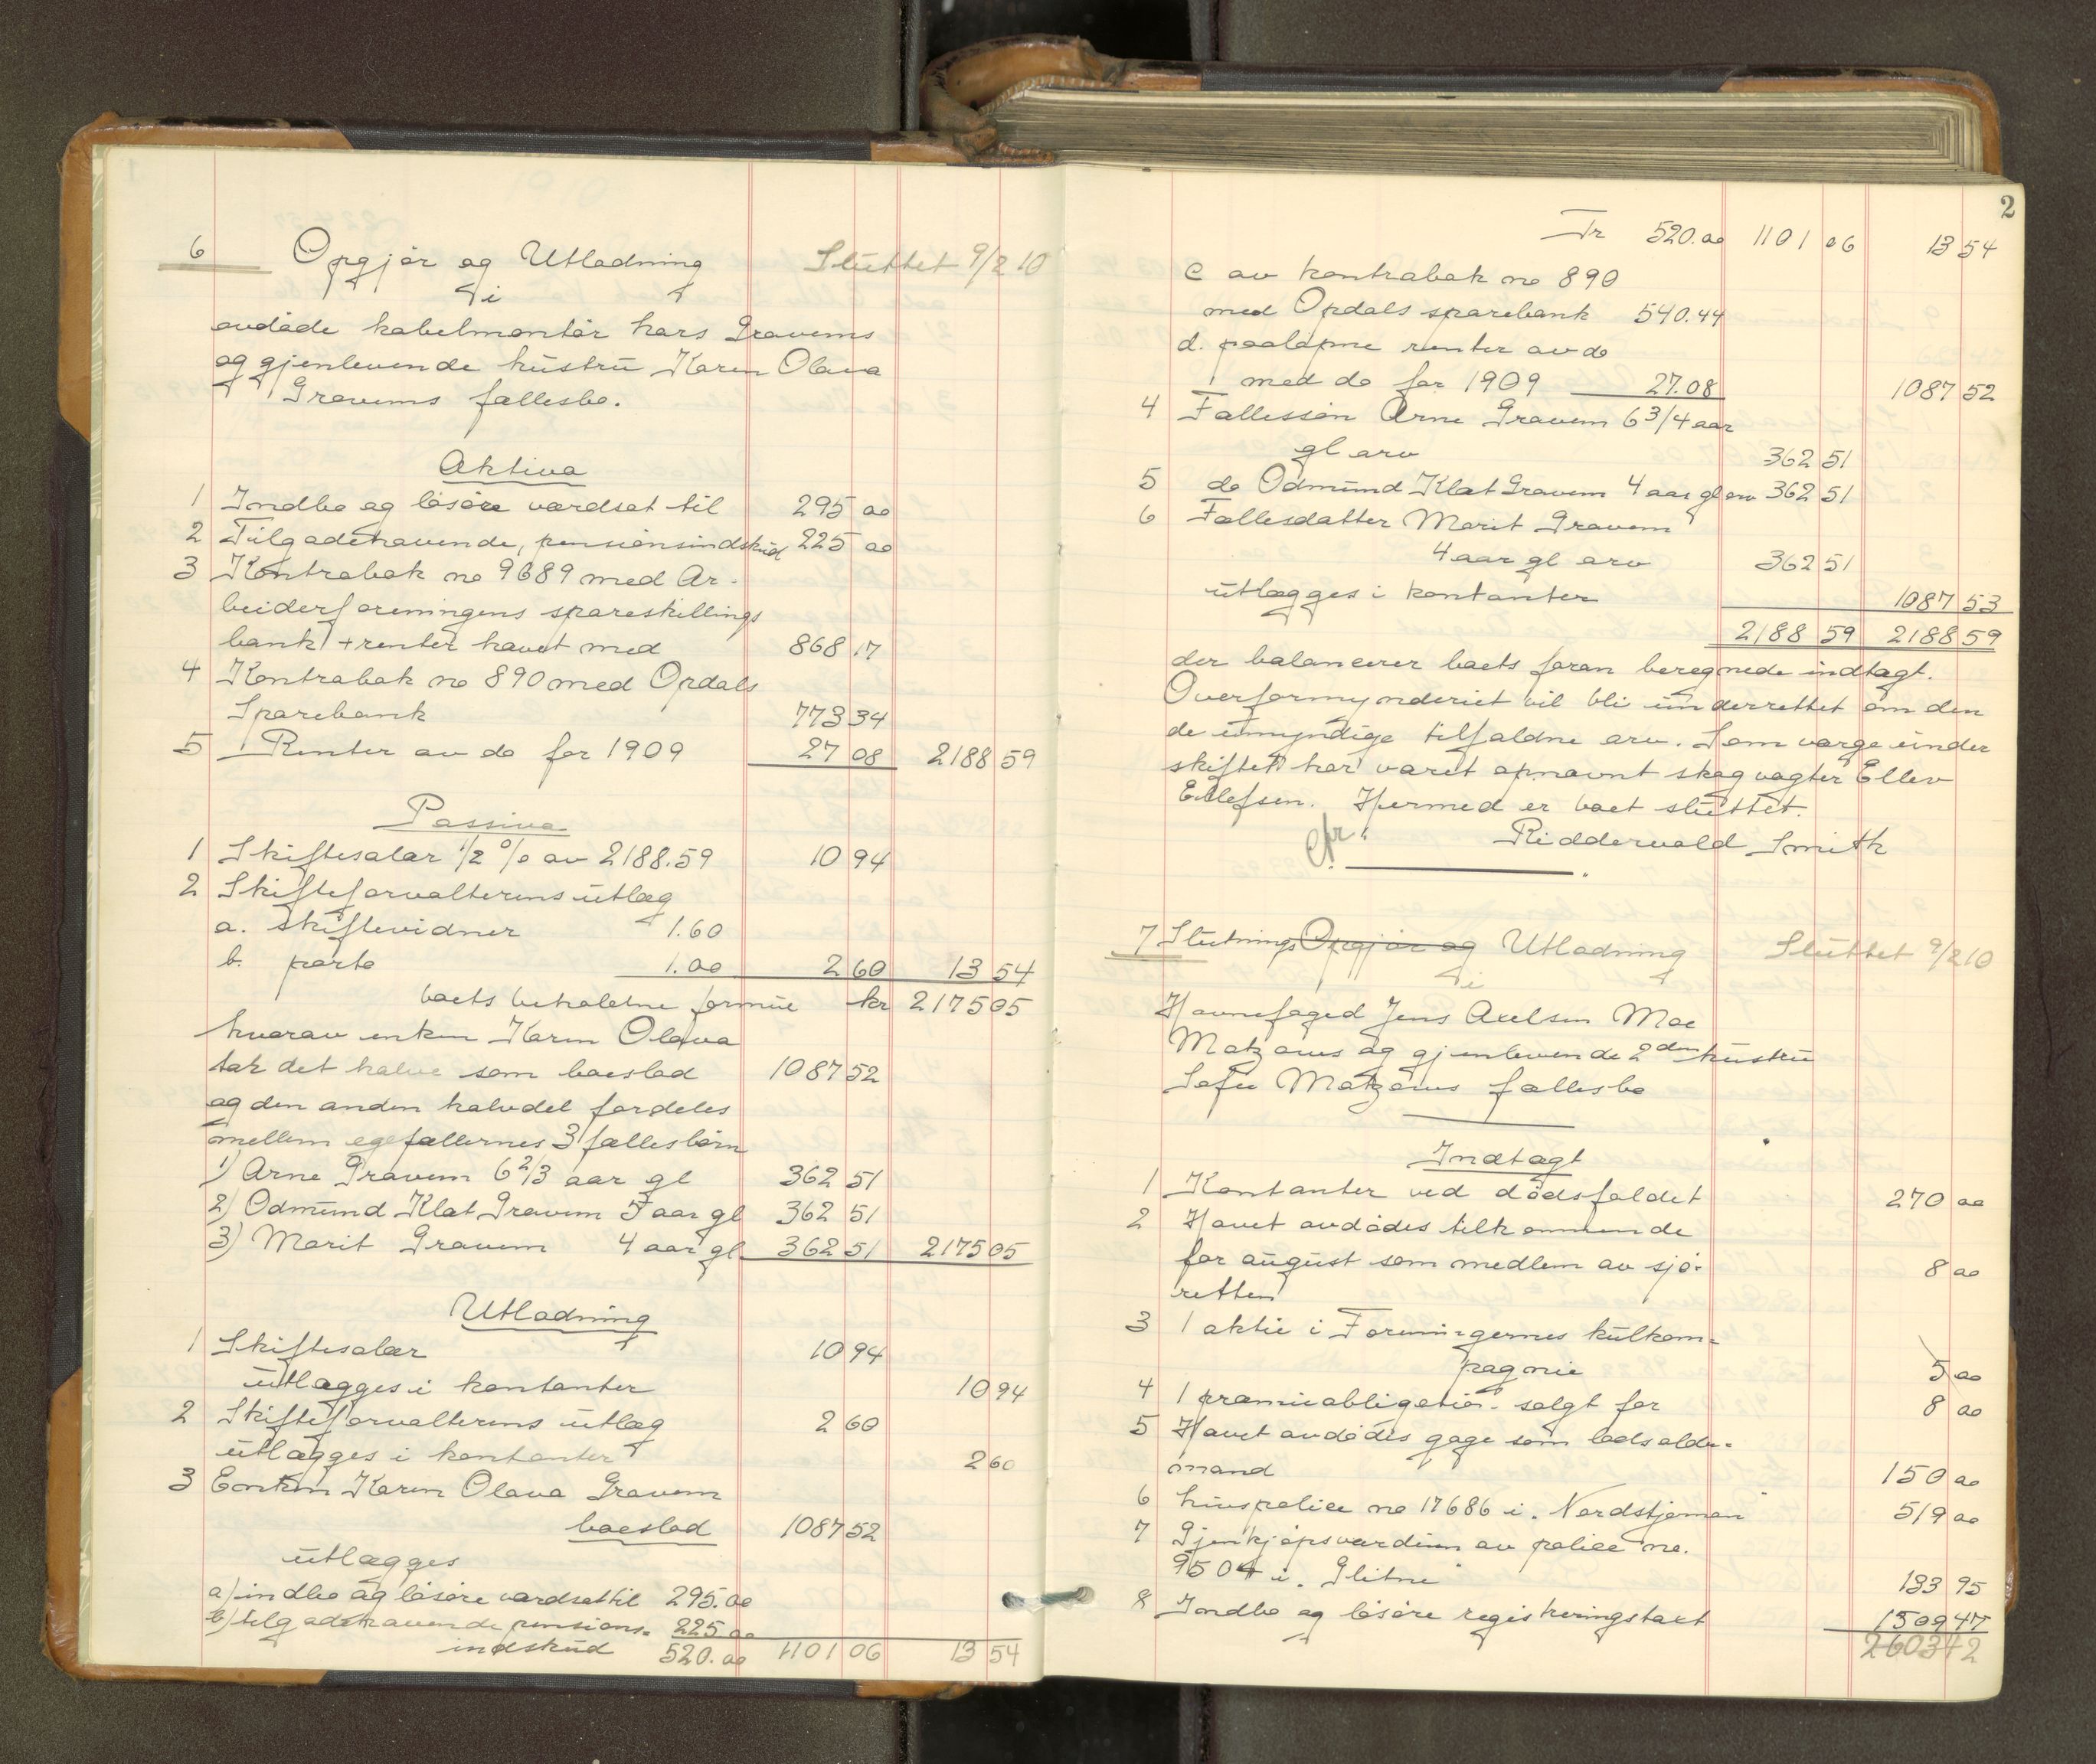 6 Opgjør og Utlodning Sluttet 9/2 10
i
avdøde kabelmontør Lars Gravems
og gjenlevende hustru Karen Olava
Gravems fællesbo.
Aktiva
1 Indbo og løsøre værdsat til 295 00
2 Tilgodehavende, pensionsindskud 225 00
3 Kontrabok no 9689 med Ar-
beiderforeningens spareskillings
bank + renter hævet med 868 17
4 Kontrabok no 890 med Opdals
Sparebank 773 34
5 Renter av do for 1909 27 08 2188 59
Passiva
1 Skiftesalær 1/2 % av 2188.59 10 94
2 Skifteforvalterens utlæg
a. skiftevidner 1.60
b. porto 1.00 2 60 13 54
boets beholdne formue kr 2175 05
hvorav enken Karen Olava
tar det halve som boeslod 1087 52
og den anden halvdel fordeles
mellem egefællernes 3 fællesbørn
1) Arne Gravem 6 2/3 aar gl 362 51
2) Odmund Klat Gravem 5 aar gl 362 51
3) Marit Gravem 4 aar gl 362 51 2175 05
Utlodning
1 Skiftesalær 10 94
utlægges i kontanter 10 94
2 Skifteforvalterens utlæg 2 60
utlægges i kontanter 2 60
3 Enken Karen Olava Gravem
boeslod 1087 52
utlægges
a) indbo og løsøre værdsat til 295.00
b) tilgodehavende pensions- 225.00
indskud 520.00 1101 06 13 54
2
Tr 520.00 1101 06 13 54
c av kontrabok no 890
med Opdals sparebank 540.44
d. paaløpne renter av do
med do for 1909 27.08 1087 52
4 Fællessøn Arne Gravem 6 3/4 aar
gl arv 362 51
5 do Odmund Klat Gravem 4 aar gl arv 362 51
6 Fællesdatter Marit Gravem
4 aar gl arv 362 51
utlægges i kontanter 1087 53
2188 59 2188 59
der balancerer boets foran beregnede indtægt.
Overformynderiet vil bli underrettet om den
de umyndige tilfaldne arv. Som værge under
skiftet har været opnævnt skogvagter Ellev
Ellefsen. Hermed er boet sluttet.
cfr. Riddervold Smith
7 Slutnings Opgjør og Utlodning Sluttet 9/2 10
i
Havnefoged Jens Axelsen Moe
Matzows og gjenlevende 2den hustru
Sofie Matzows fællesbo
Indtægt
1 Kontanter ved dødsfaldet 270 00
2 Hævet avdødes tilkommende
for august som medlem av sjø-
retten 8 00
3 1 aktie i Foreningernes kulkom-
pagnie 5 00
4 1 præmieobligation solgt for 8 00
5 Hævet avdødes gage som lodsolder-
mand 150 00
6 Livspolice no 17686 i "Nordstjernen" 519 00
7 Gjenkjøpsværdien av police no.
9504 i "Glitne" 133 95
8 Indbo og løsøre registreringstakt 1509 47
2603 42